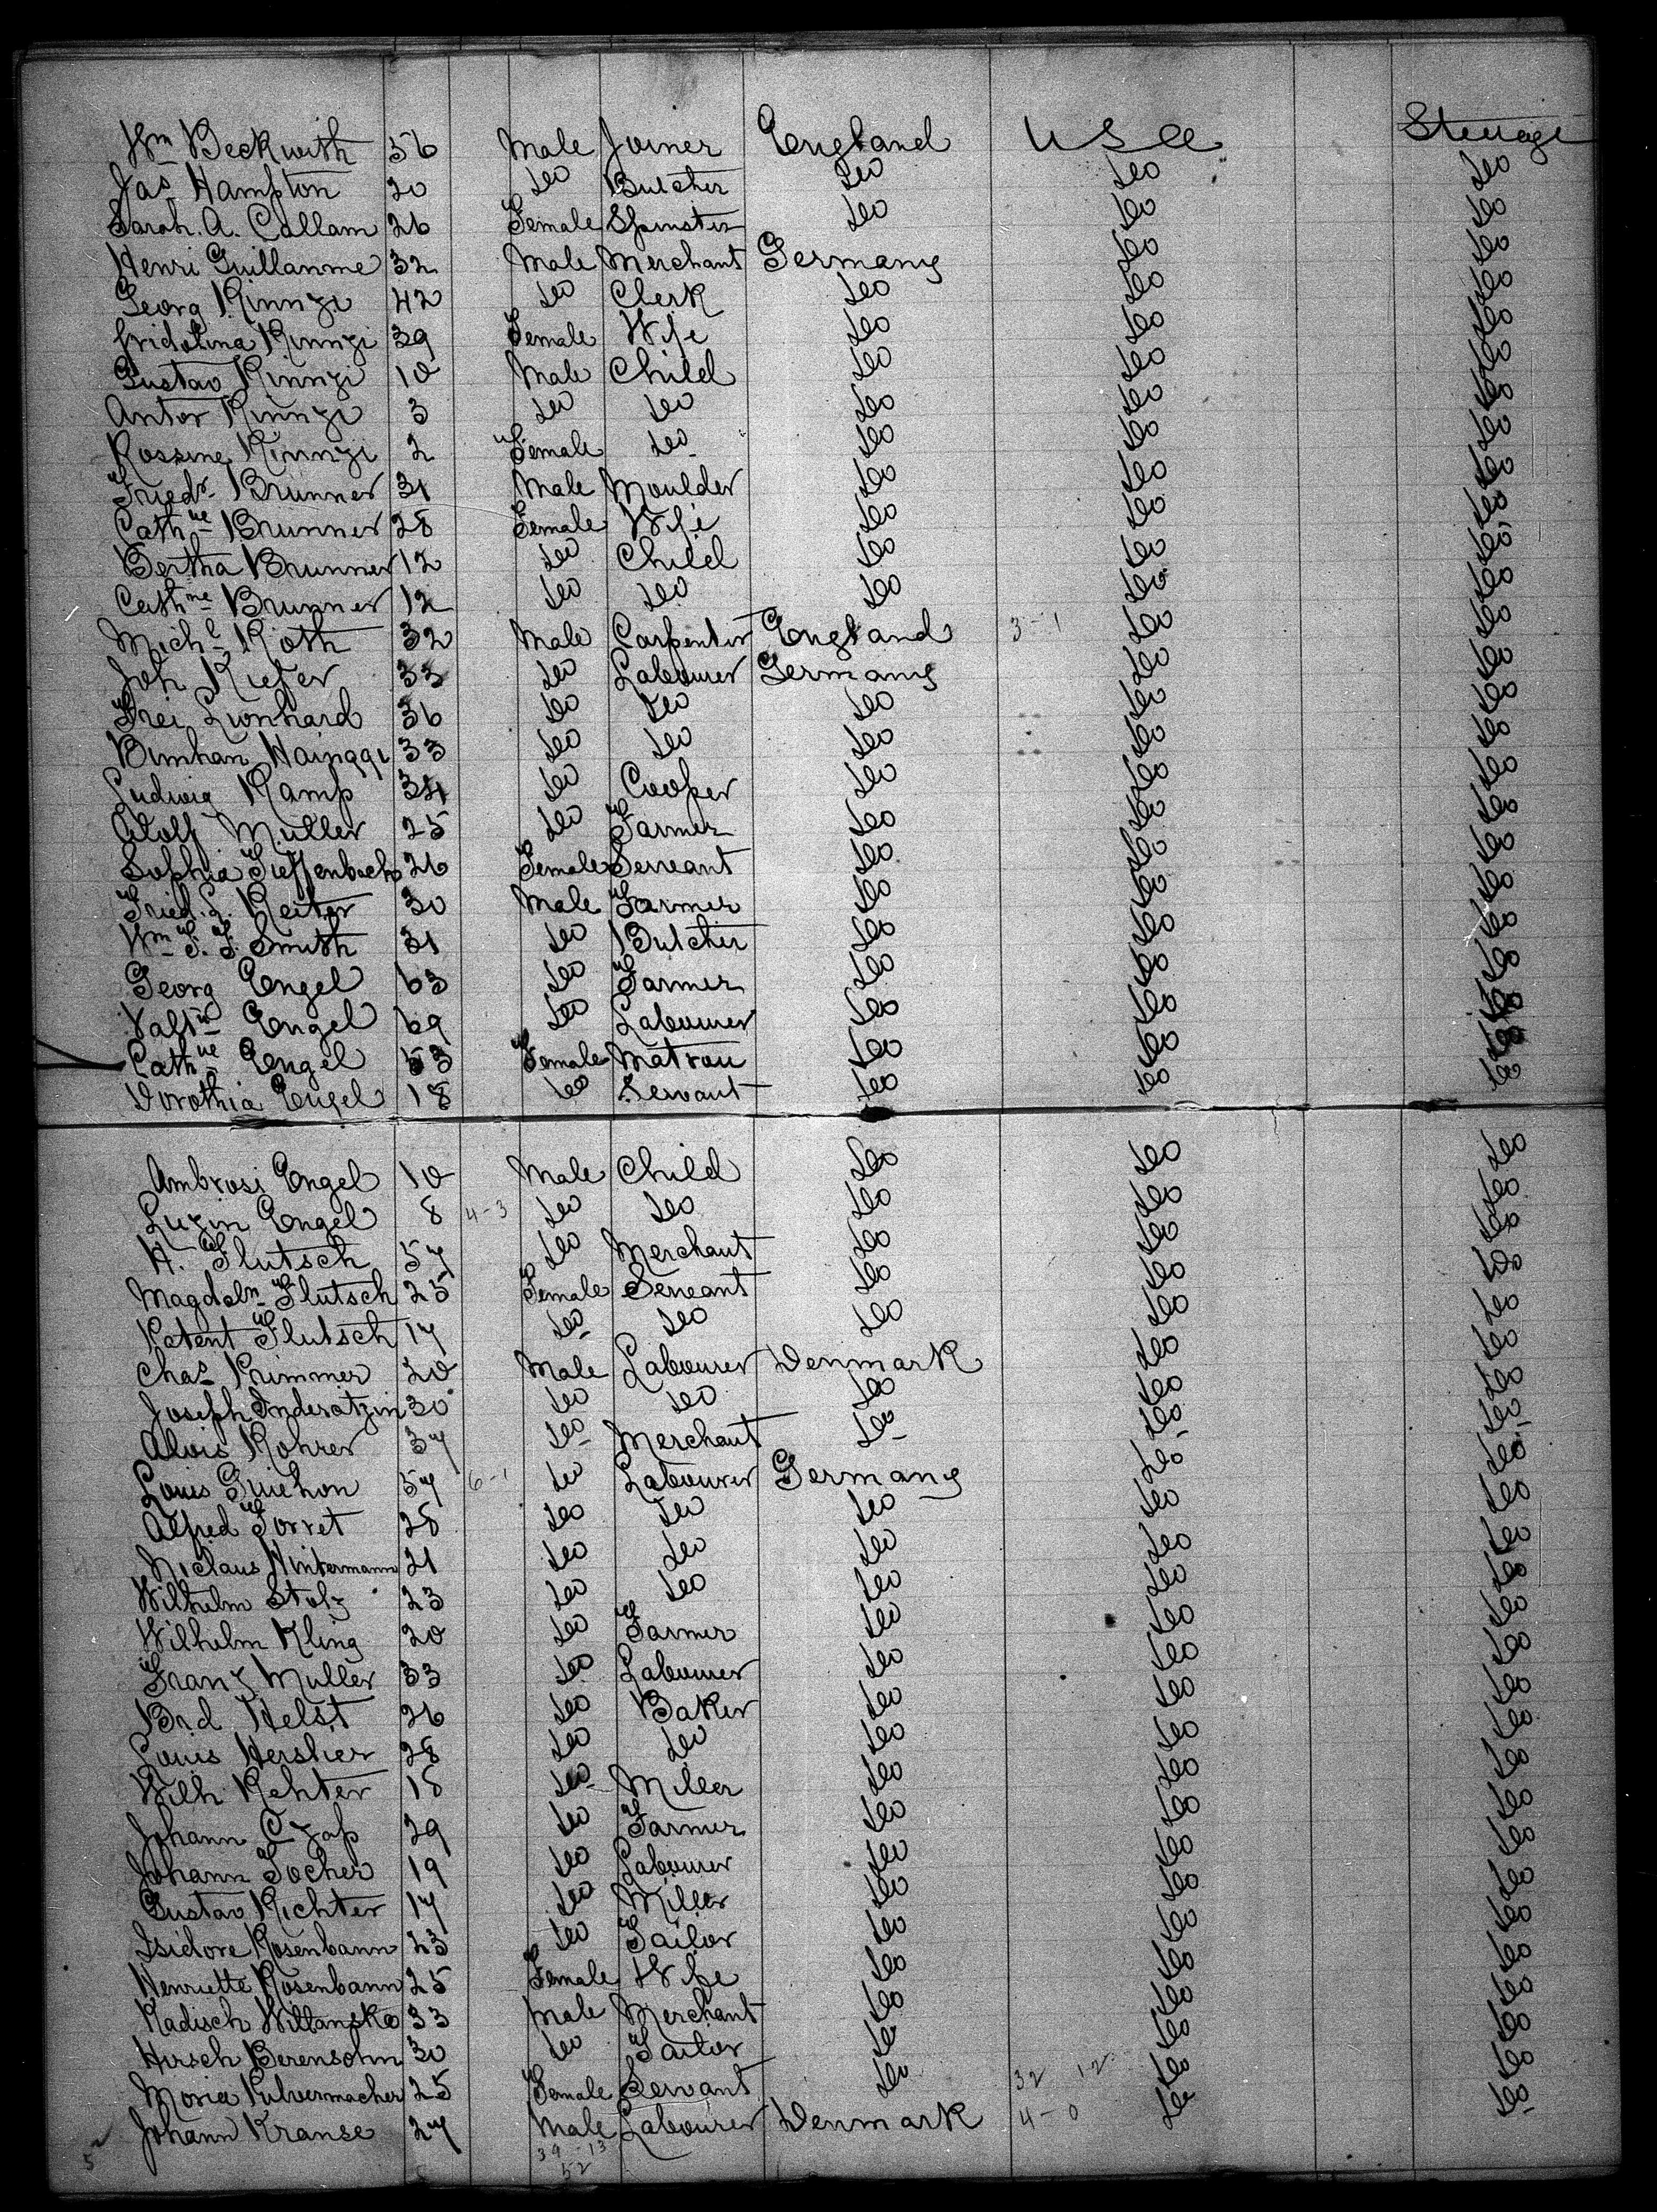 Wm Beckwith 56 Male Joiner England U S A Steerage
Jas Hampton 20 Do Butcher Do Do Do
Sarah. A. Callam 26 Female Spinster Do Do Do
Henri Guillamme 32 Male Merchant Germany Do Do
Georg Kinnzi 42 Do Clerk Do Do Do
Fridolina Kinnzi 39 Female Wife Do Do Do
Gustav Kinnzi 10 Male Child Do Do Do
Anton Kinnzi 3 Do Do Do Do Do
Rossine Kinnzi 2 Female Do Do Do Do
Friedr Brunner 31 Male Moulder Do Do Do
Cathne Brunner 28 Female Wife Do Do Do
Bertha Brunner 12 Do Child Do Do Do
Cathne Brunner 12 Do Do Do Do Do
Michl Roth 32 Male Carpenter England 3-1 Do Do
Joh Kiefer 33 Do Labourer Germany Do Do
Frei Lionhard 36 Do Do Do Do Do
Hainggi 33 Do Do Do Do Do
Ludwig Kamp 34 Do Cooper Do Do Do
Adolf Muller 25 Do Farmer Do Do Do
Sophia Tieffenbach 26 Female Servant Do Do Do
Fried. L. Reiter 30 Male Farmer Do Do Do
Wm F. F. Smith 31 Do Butcher Do Do Do
Georg Engel 63 Do Farmer Do Do Do
Valtn Engel 69 Do Labourer Do Do Do
Cathne Engel 53 Female Matron Do Do Do
Dorothia Engel 18 Do Servant Do Do Do
Ambrosi Engel 10 Male Child Do Do Do
Luzin Engel 8 4-3 Do Do Do Do Do
H. Flutsch 57 Do Merchant Do Do Do
Magdaln Flutsch 25 Female Servant Do Do Do
Katent Flutsch 17 Do Do Do Do Do
Chas Krimmer 20 Male Labourer Denmark Do Do
Joseph Inderatzin 30 Do Do Do Do Do
Alois Rohrer 37 Do Merchant Do Do Do
Louis Guichon 57 6-1 Do Labourer Germany Do Do
Alfred Torret 28 Do Do Do Do Do
Niclaus Hintermann 21 Do Do Do Do Do
Wilhelm Stolz 23 Do Do Do Do Do
Wilhelm Kling 20 Do Farmer Do Do Do
Franz Muller 33 Do Labourer Do Do Do
Brd Helst 26 Do Baker Do Do Do
Louis Hersher 28 Do Do Do Do Do
Wilh Rehter 18 Do Miller Do Do Do
Johann Czap 29 Do Farmer Do Do Do
Johann Tocher 19 Do Labourer Do Do Do
Gustav Richter 17 Do Miller Do Do Do
Isidore Rosenbann 23 Do Tailor Do Do Do
Henriette Rosenbann 25 Female Wife Do Do Do
Kadisch Wiltansko 33 Male Merchant Do Do Do
Hirsch Berensohn 30 Do Tailor Do Do Do
Moria Pulvermacher 25 Female Servant Do 32 12 Do Do
Johann Kranse 27 Male Labourer Denmark 4-0 Do Do
39-13
5 52